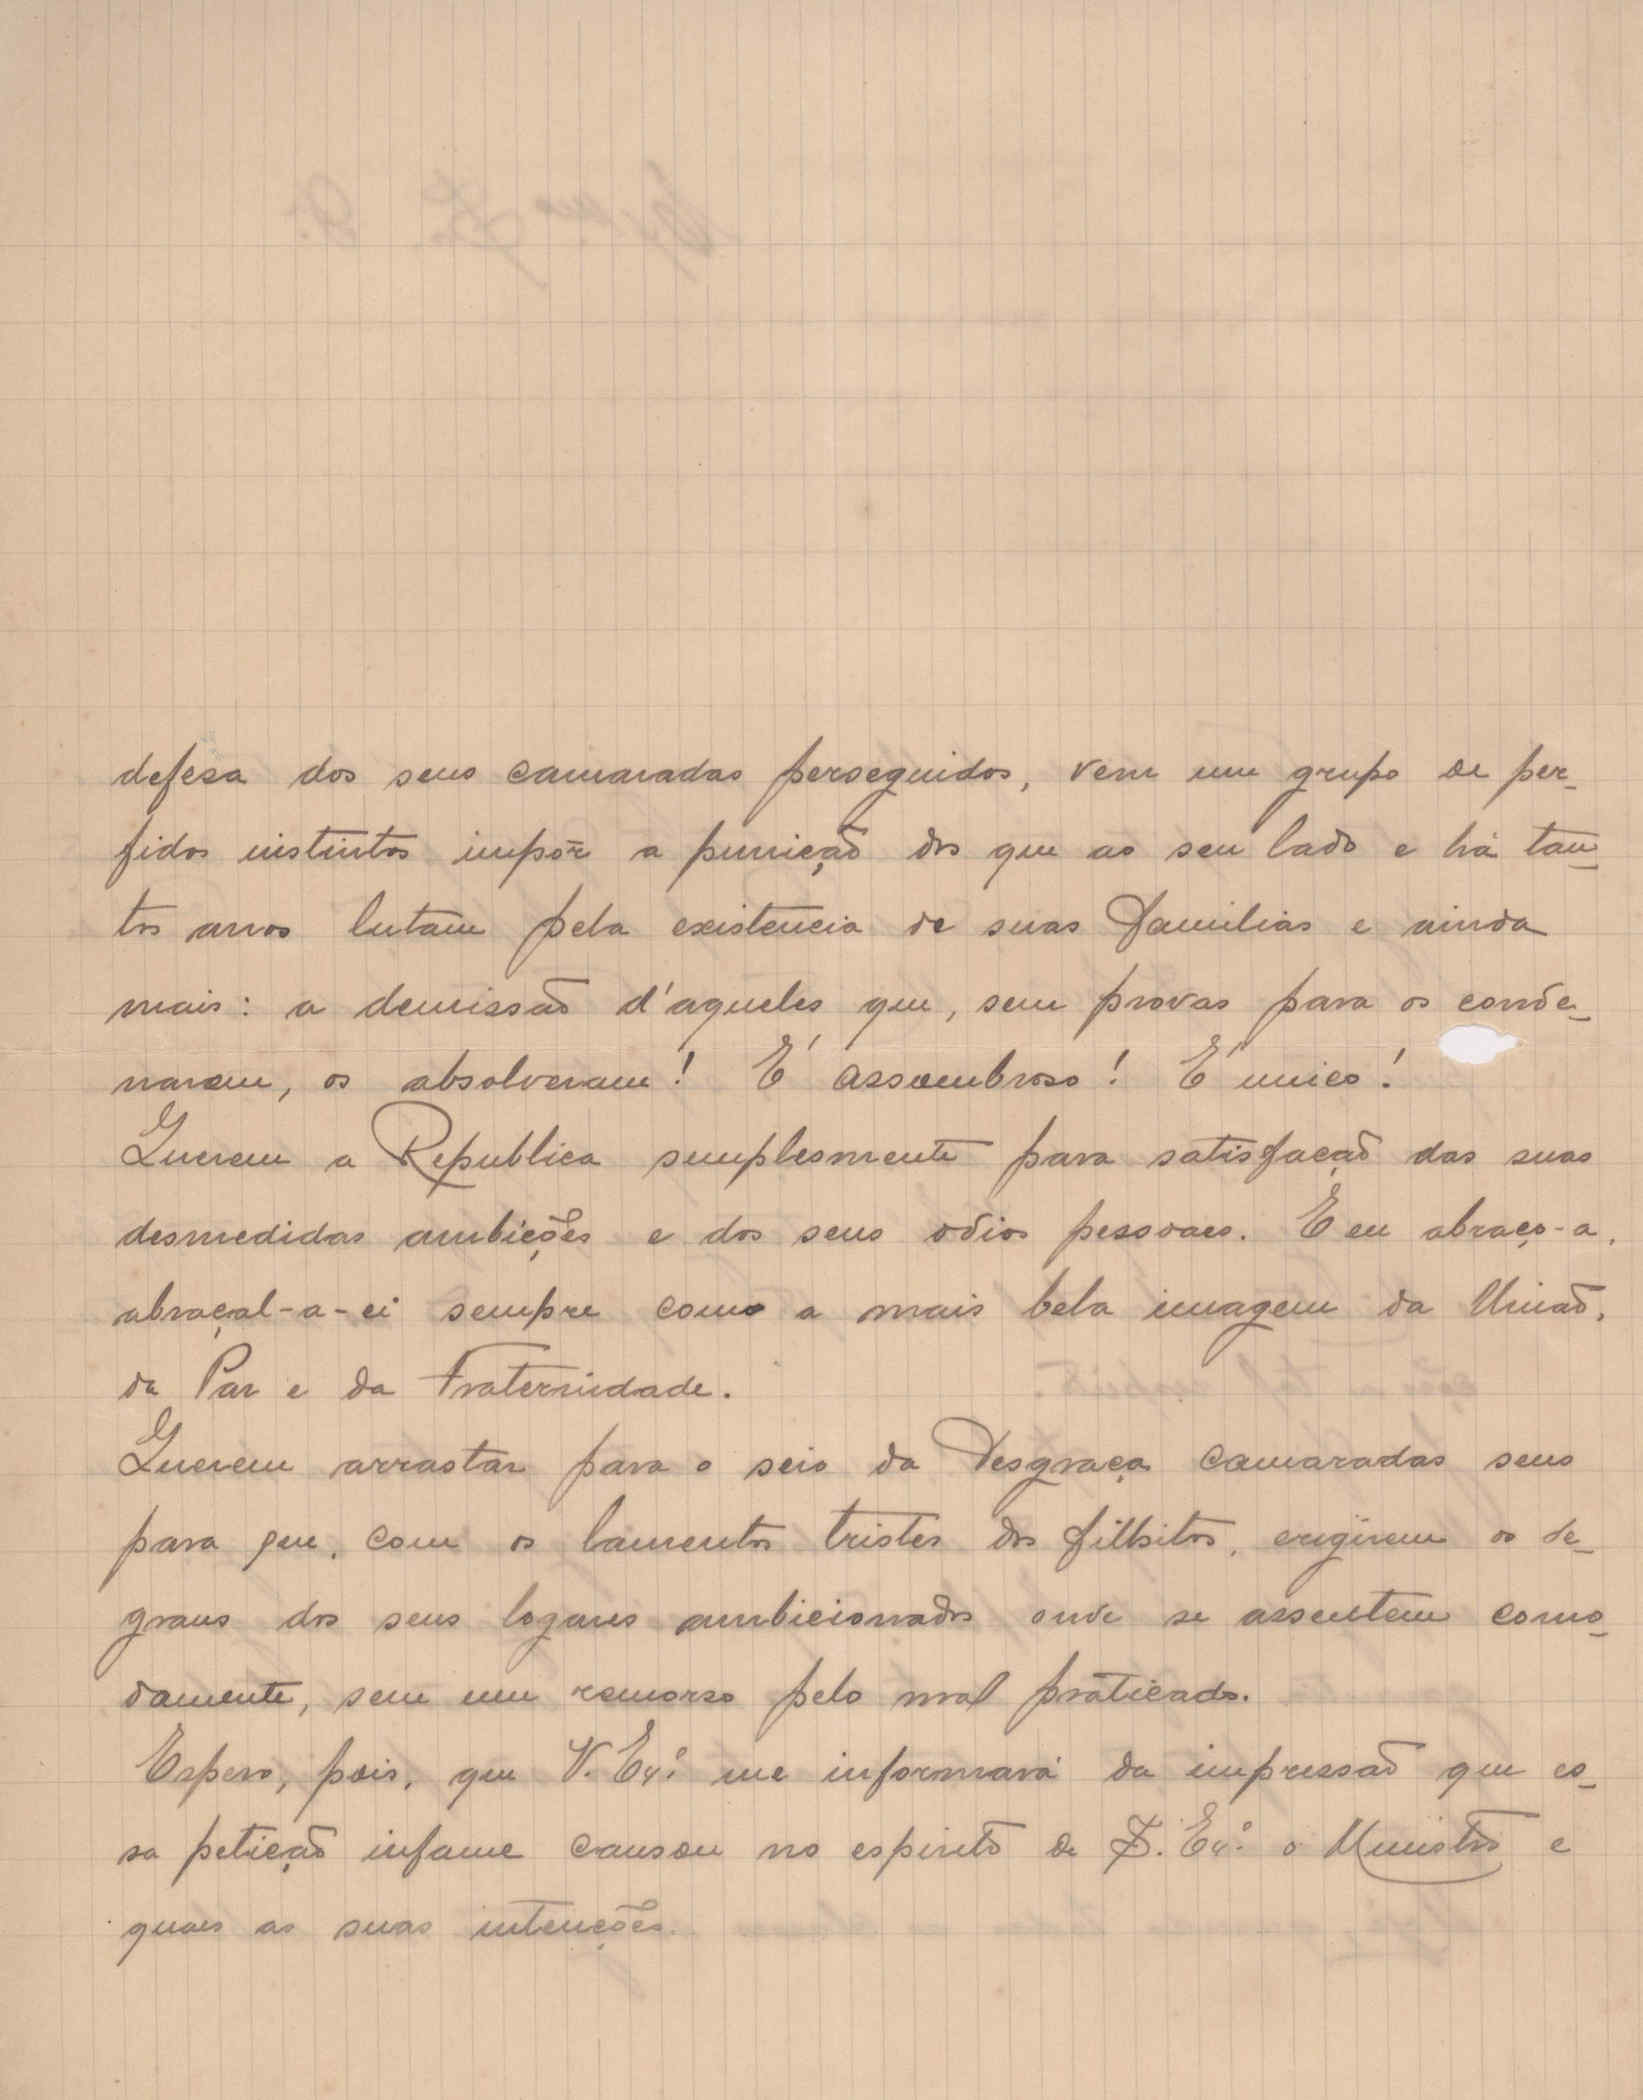 defesa dos seus camaradas perseguidos, vem um grupo de per-
fidos instintos impôr a punição dos que ao seu lado e há tan-
tos anos lutam pela existencia de suas familias e ainda
mais: a demissão d'aqueles que, sem provas para os conde-
narem, os absolveram! É assombroso! É unico!
Querem a Republica simplesmente para satisfação das suas
desmedidas ambições e dos seus odios pessoaes. E eu abraço-a,
abraçal-a-ei sempre como a mais bela imagem da União,
da Paz e da Fraternidade.
Querem arrastar para o seio da Desgraça camaradas seus
para que, com os lamentos tristes dos filhitos, erigirem os de-
graus dos seus logares ambicionados onde se assentem como-
damente, sem um remorso pelo mal práticado.
Espero, pois, que V. Exª. me informará da impressão que es-
sa petição infame causou no espirito de S. Exª. o Ministro e
quaes as suas intenções.